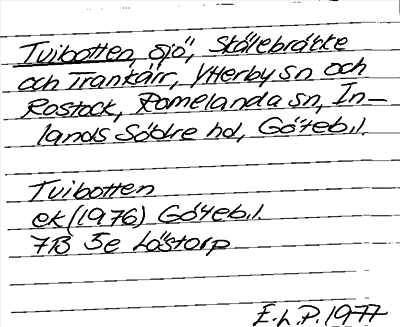 Tvibotten, sjö, Stålebråtte
och Trankärr, Ytterby sn och
Rostock, Romelanda sn, In-
lands Södre hd, Göteb.l.
Tvibotten
ek (1976) Göteb.l.
7B 5e Låstorp
E.L.P. 1977